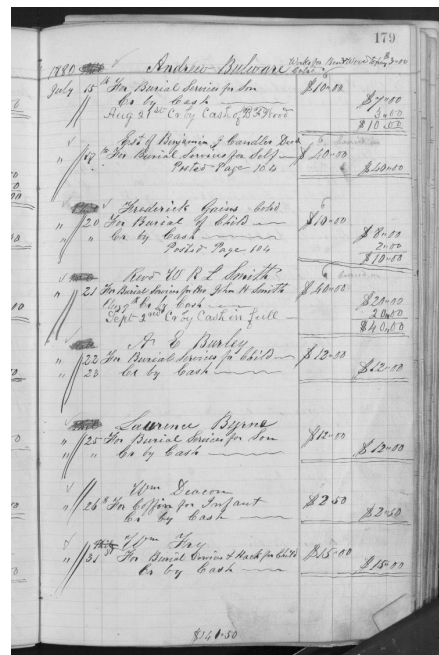 179
1880 Andrew Bulware Works for Ben Wood
July 15th For Burial Services for Son $10.00
Cr by Cash $7.00
Aug 21st Cr by Cash of B F Wood 3.00
$10.00
Est of Benjamin J Candler Decd
" 17th For Burial Services for Self $40.00
Posted Page 104 $40.00
Frederick Gains Cold
" 20 For Burial of Child $10.00
" " Cr by Cash $8.00
Posted Page 104 2.00
$10.00
Revd W R L Smith
" 21 For Burial Services for Mr John H Smith $40.00
Aug 9th Cr by Cash $20.00
Sept 2nd Cr by Cash in full 20.00
$40.00
A C Burley
" 22 For Burial Services for Child $12.00
" 23 Cr by Cash $12.00
Lawrence Byrne
" 25 For Burial Services for Son $12.00
" " Cr by Cash $12.00
Wm Deacon
" 26th For Coffin for Infant $2.50
Cr by Cash $2.50
Wm Fry
" 31 For Burial Service & Hack for Child $15.00
Cr by Cash $15.00
$141.50